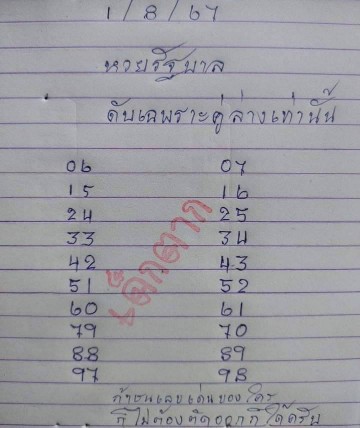 1 / 8 / 67
หวยรัฐบาล
ดับเฉพาะคู่ล่างเท่านั้น
06 07
15 16
24 25
33 34
42 43
51 52
60 61
79 70
88 89
97 98
เด็กตาก
ถ้าชนเลขเด่นของใคร
ก็ไม่ต้องตัดออกก็ได้ครับ